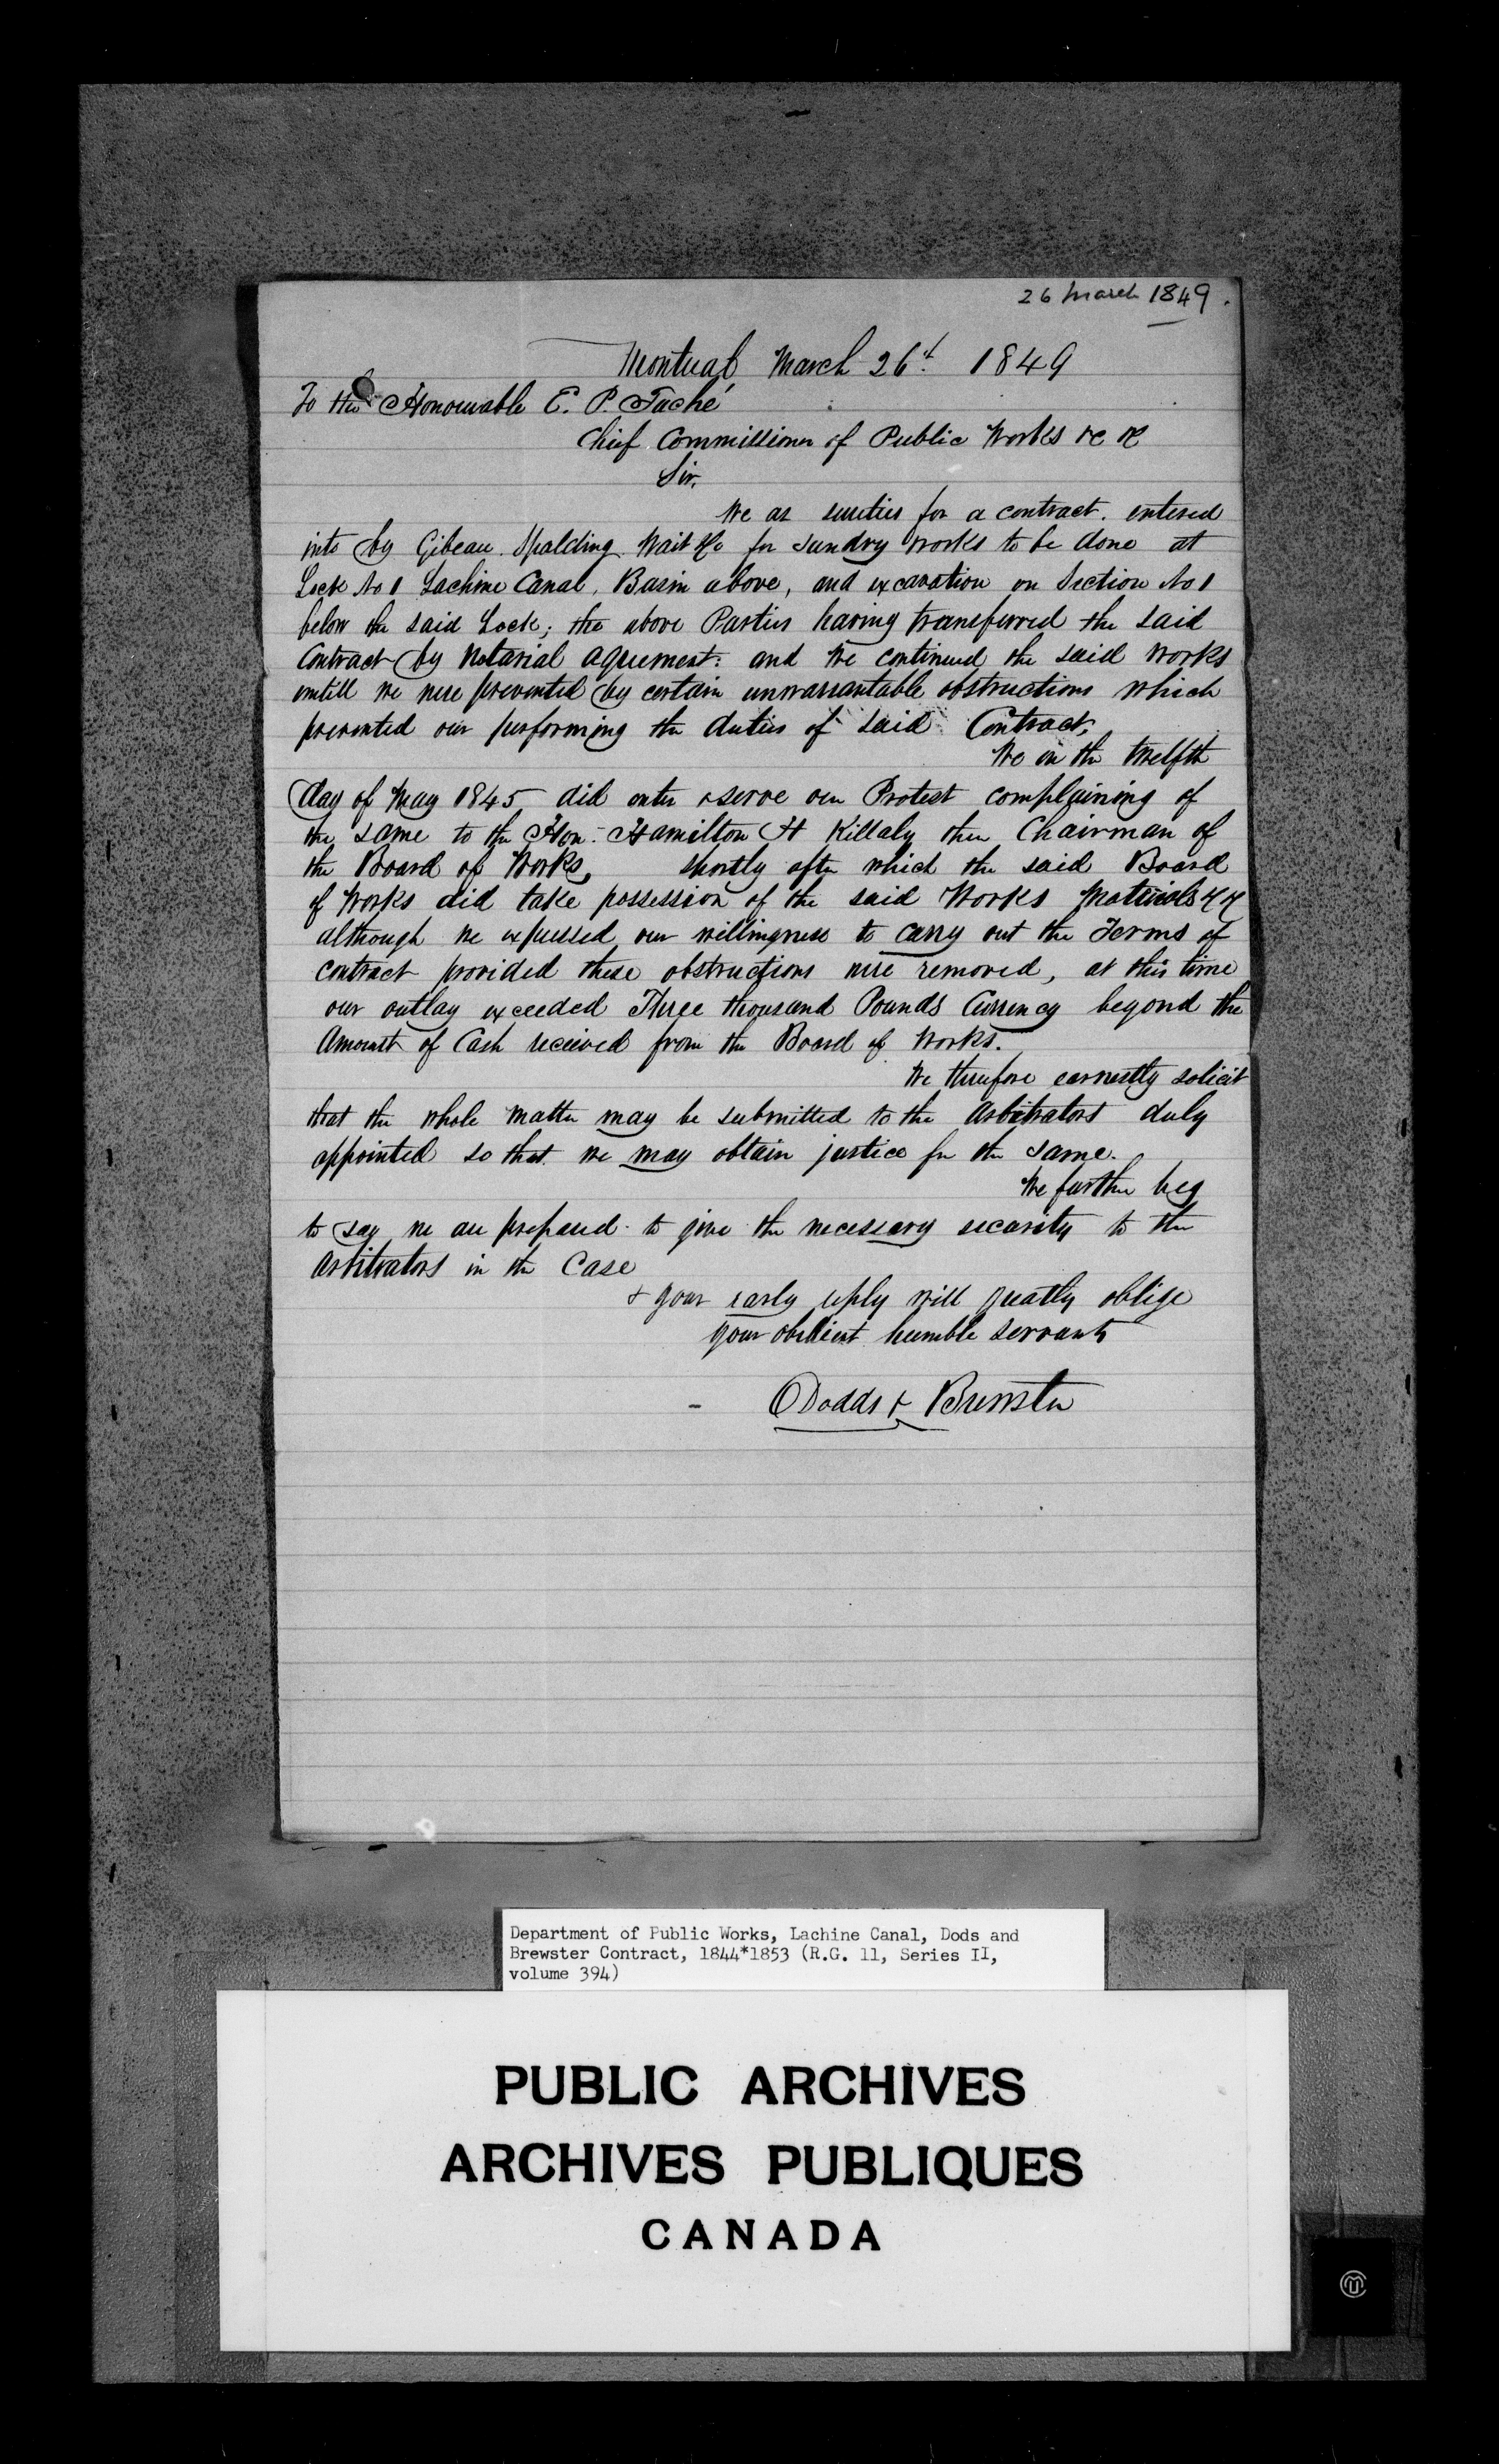 26 March 1849.
Montreal, March 26t. 1849
To the Honourable E. P. Taché
Chief Commissioner of Public Works &c &c
Sir,
We as sureties for a contract. entered
into by Gibeau. Spalding. Wait &c for sundry works to be done at
Lock No 1 Lachine Canal, Basin above, and excavation on Section No 1
below the said Lock; the above Parties having transferred the said
Contract by Notarial agreement: and We continued the said works
untill we were prevented by certain unwarrantable obstructions which
prevented our performing the duties of said Contract,
We on the twelfth
day of May 1845 did enter & serve our Protest complaining of
the same to the Hon: Hamilton H Killaly then Chairman of
the Board of Works, shortly after which the said Board
of Works did take possession of the said Works Materials &c &c
although we expressed our willingness to carry out the Terms of
contract provided these obstructions were removed, at this time
our outlay exceeded Three thousand Pounds Currency beyond the
Amount of Cash received from the Board of Works.
We therefore earnestly solicit
that the whole matter may be submitted to the Arbitrators duly
appointed so that we may obtain justice for the same.
We further beg
to say we are prepared to give the necessary security to the
Arbitrators in the Case
& your early reply will greatly oblige
your obedient humble servants
Dodds & Brewster
Department of Public Works, Lachine Canal, Dods and
Brewster Contract, 1844*1853 (R.G. 11, Series II,
volume 394)
PUBLIC ARCHIVES
ARCHIVES PUBLIQUES
CANADA